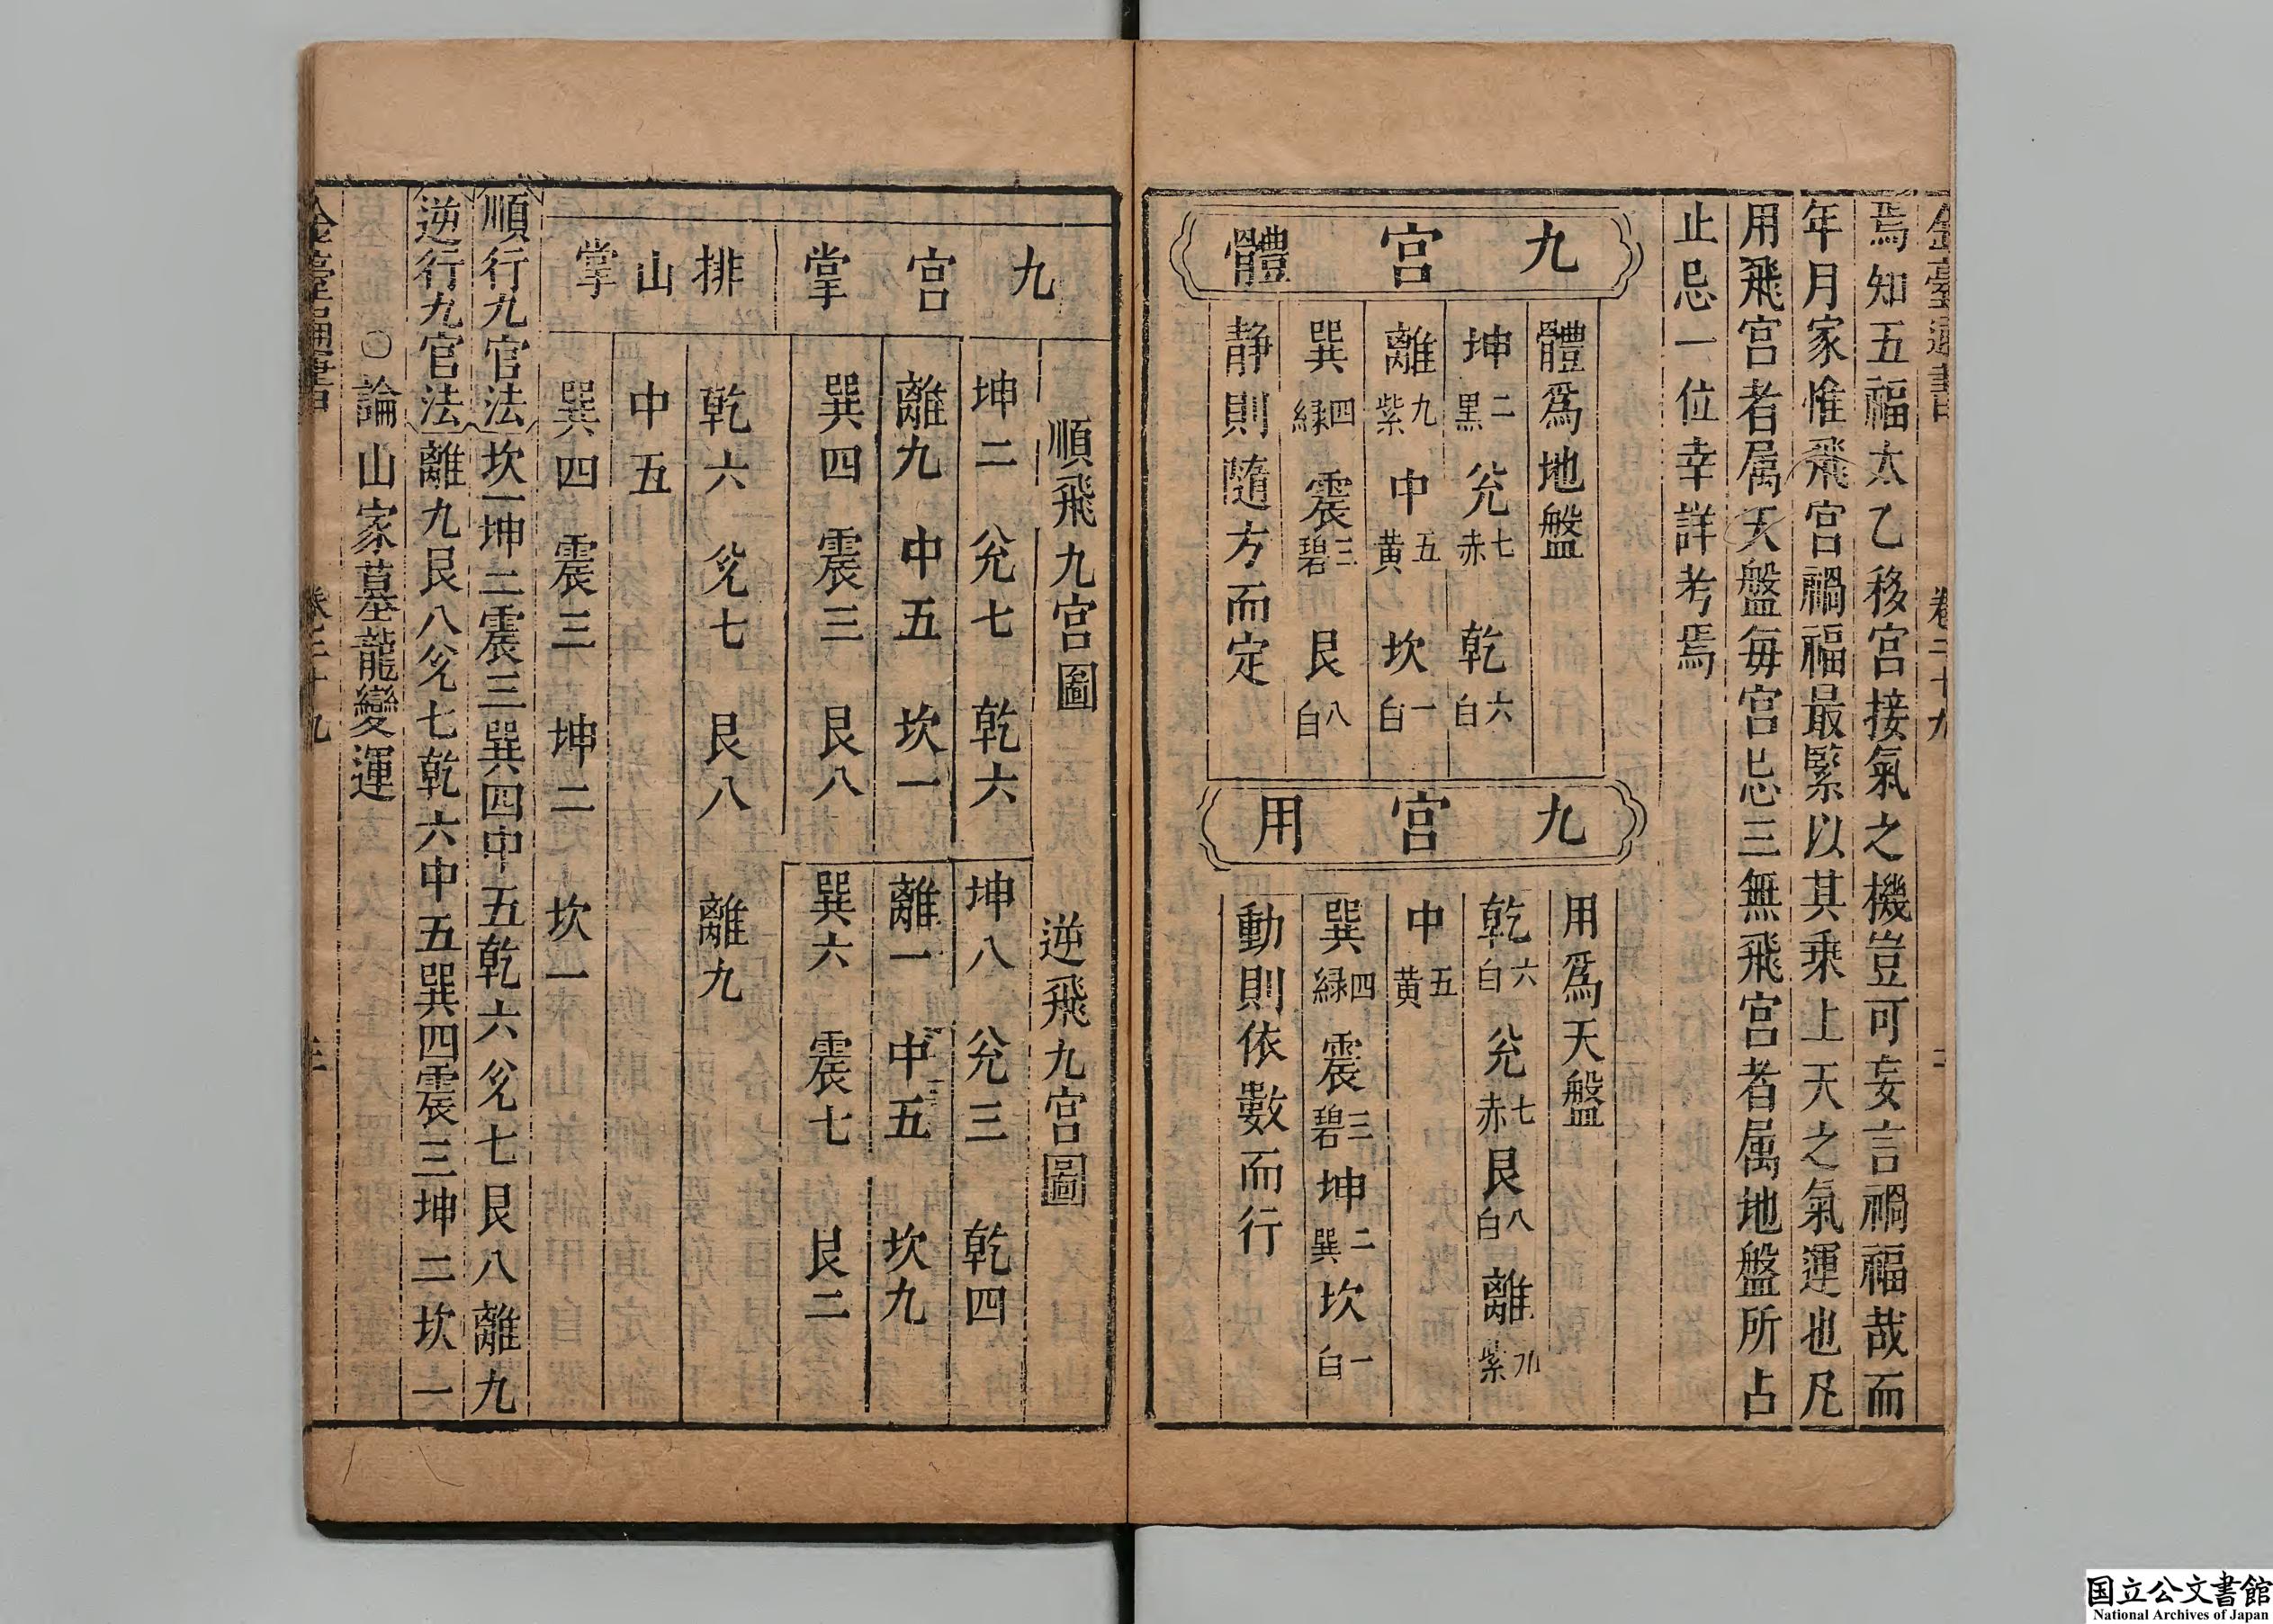 焉知五福太乙移宮接氣之機豈可妄言禍福哉而
年月家惟飛宮禍福最緊以其乘上天之氣運也凡
用飛宮者属天盤每宮忌三無飛宮者属地盤所占
止忌一位幸詳考焉
九宮體
體爲地盤
坤二黑 兊七赤 乾六白
離九紫 中五黄 坎一白
巽四緑 震三碧 艮八白
静則隨方而定
九宮用
用爲天盤
乾六白 兊七赤 艮八白 離九紫
中五黄
巽四緑 震三碧 坤二巽 坎一白
動則依數而行
九宮掌
順飛九宮圖
坤二 兊七 乾六
離九 中五 坎一
巽四 震三 艮八
逆飛九宮圖
坤八 兊三 乾四
離一 中五 坎九
巽六 震七 艮二
排山掌
乾六 兊七 艮八 離九
中五
巽四 震三 坤二 坎一
順行九宮法 坎一坤二震三巽四中五乾六兊七艮八離九
逆行九宮法 離九艮八兊七乾六中五巽四震三坤二坎一
○論山家墓龍變運
卷三十九
国立公文書館
National Archives of Japan